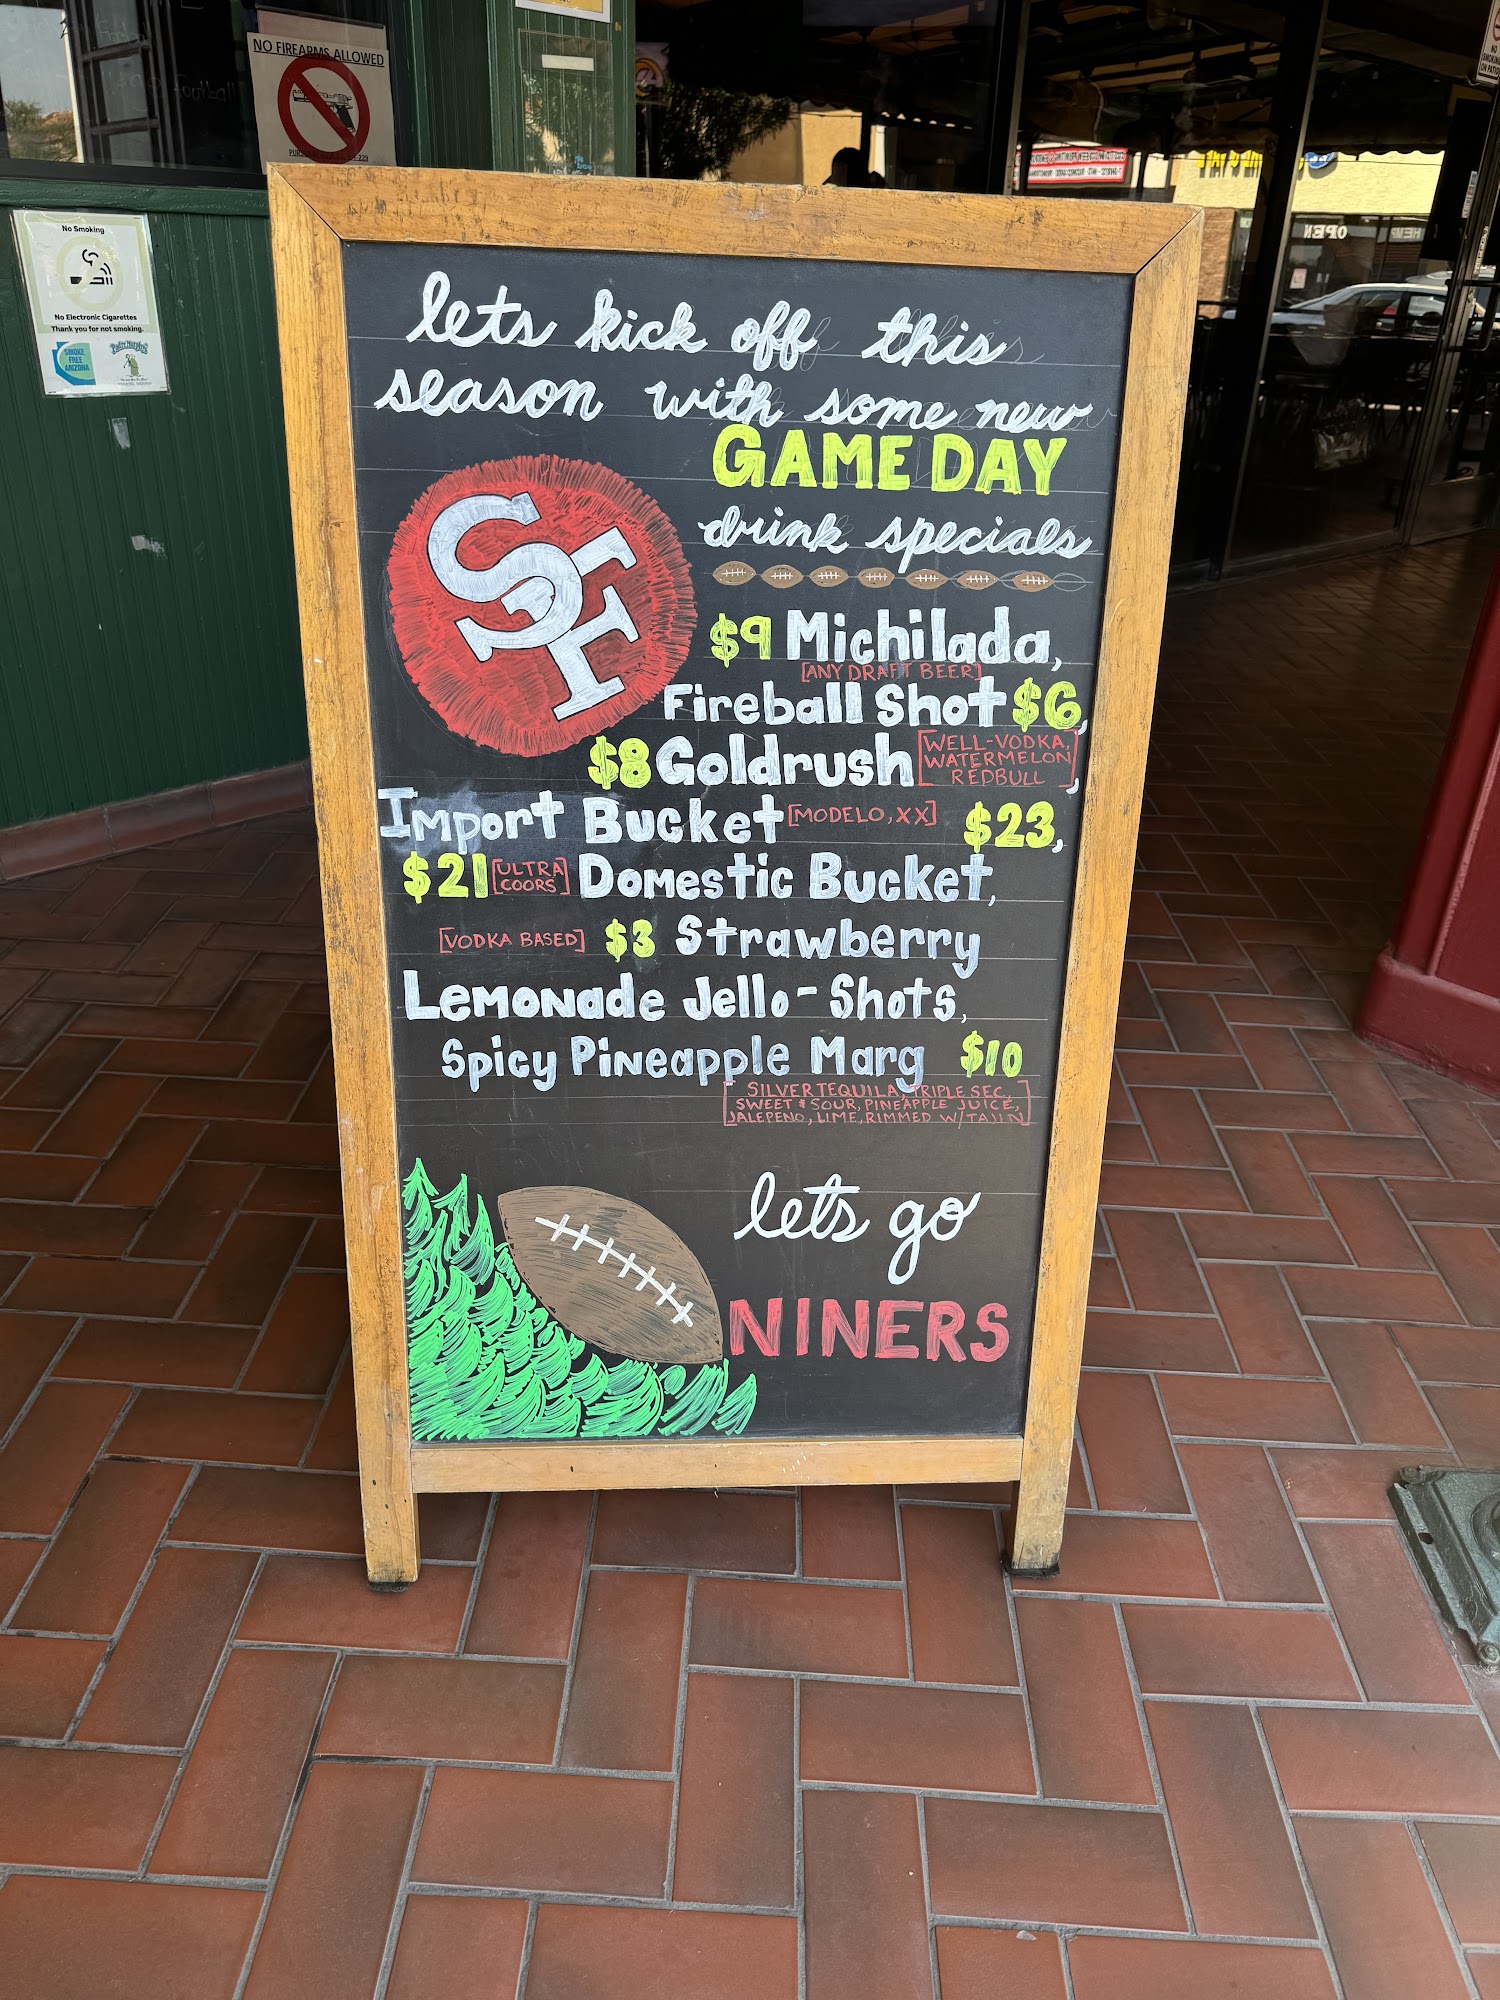 NO FIREARMS ALLOWED
No Smoking
No Electronic Cigarettes
Thank you for not smoking.
SMOKE
FREE
ARIZONA
OPEN
lets kick off this
season with some new
GAME DAY
drink specials
SF
$9 Michilada,
[ANY DRAFT BEER]
Fireball Shot $6,
$8 Goldrush [WELL-VODKA,
WATERMELON
REDBULL],
Import Bucket [MODELO, XX] $23,
$21 [ULTRA
COORS] Domestic Bucket,
[VODKA BASED] $3 Strawberry
Lemonade Jello-Shots,
Spicy Pineapple Marg $10
[SILVER TEQUILA, TRIPLE SEC,
SWEET & SOUR, PINEAPPLE JUICE,
JALEPENO, LIME, RIMMED W/TAJIN]
lets go
NINERS